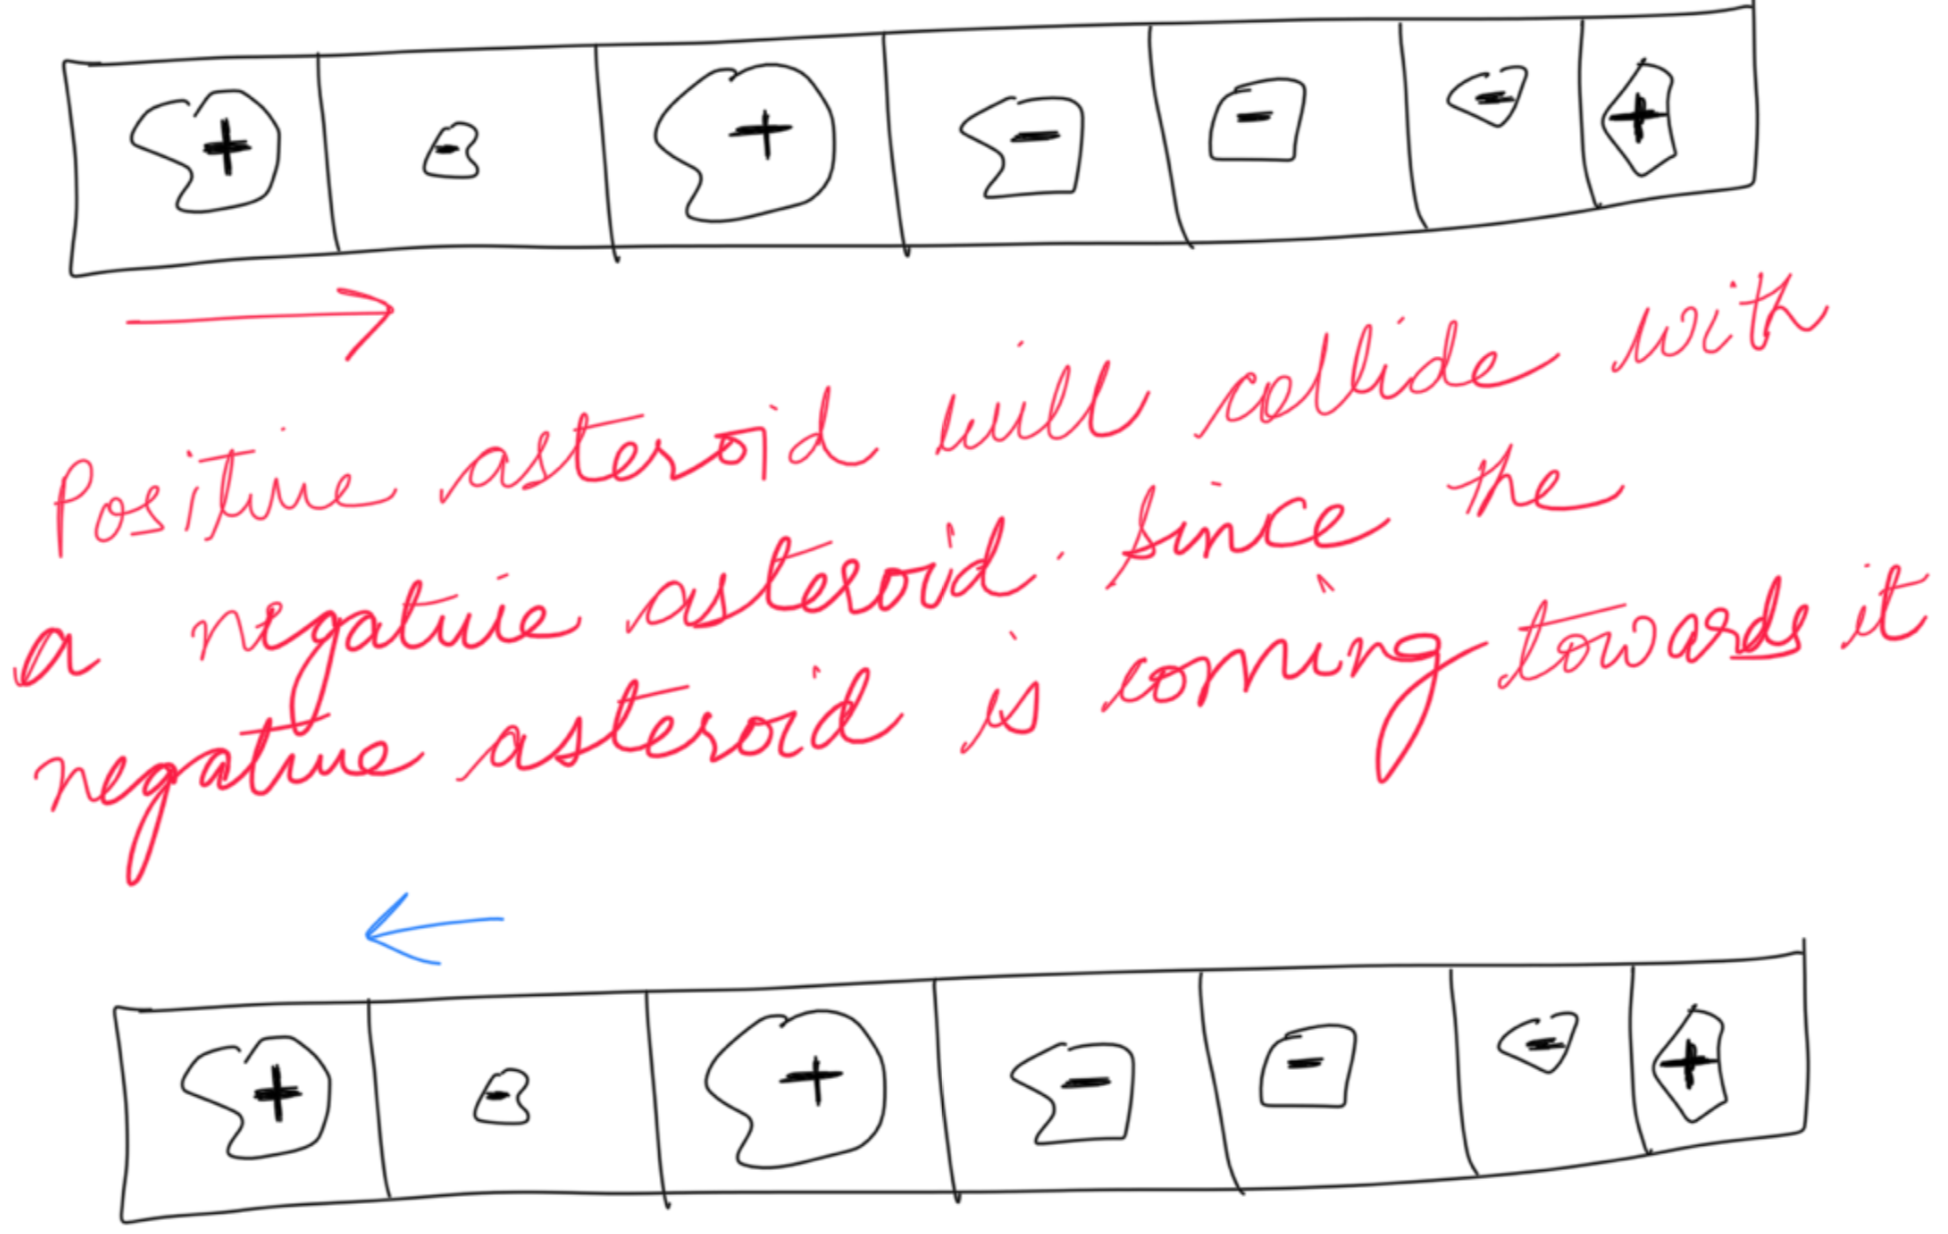 + - + - - - +
Positive asteroid will collide with
a negative asteroid. Since the
negative asteroid is coming towards it
+ - + - - - +